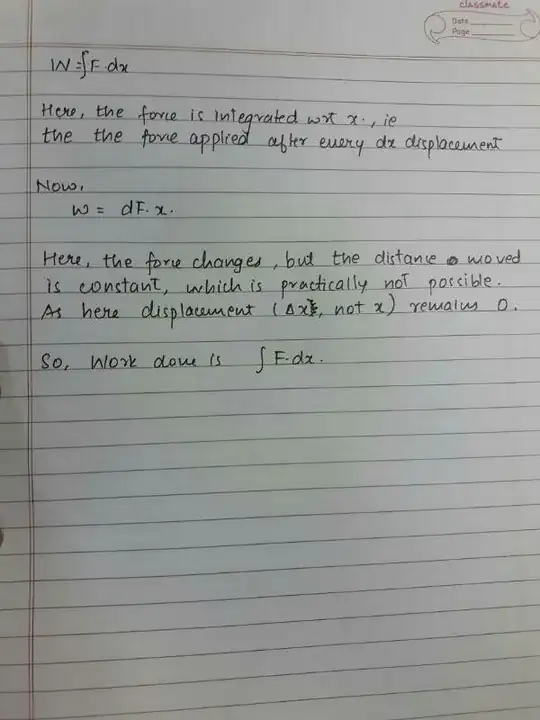 classmate
Date
Page
W = ∫F.dx
Here, the force is integrated wrt x., ie
the the force applied after every dx displacement
Now,
W = dF. x.
Here, the force changes, but the distance moved
is constant, which is practically not possible.
As here displacement (Δx, not x) remains 0.
So, Work done is ∫ F.dx.